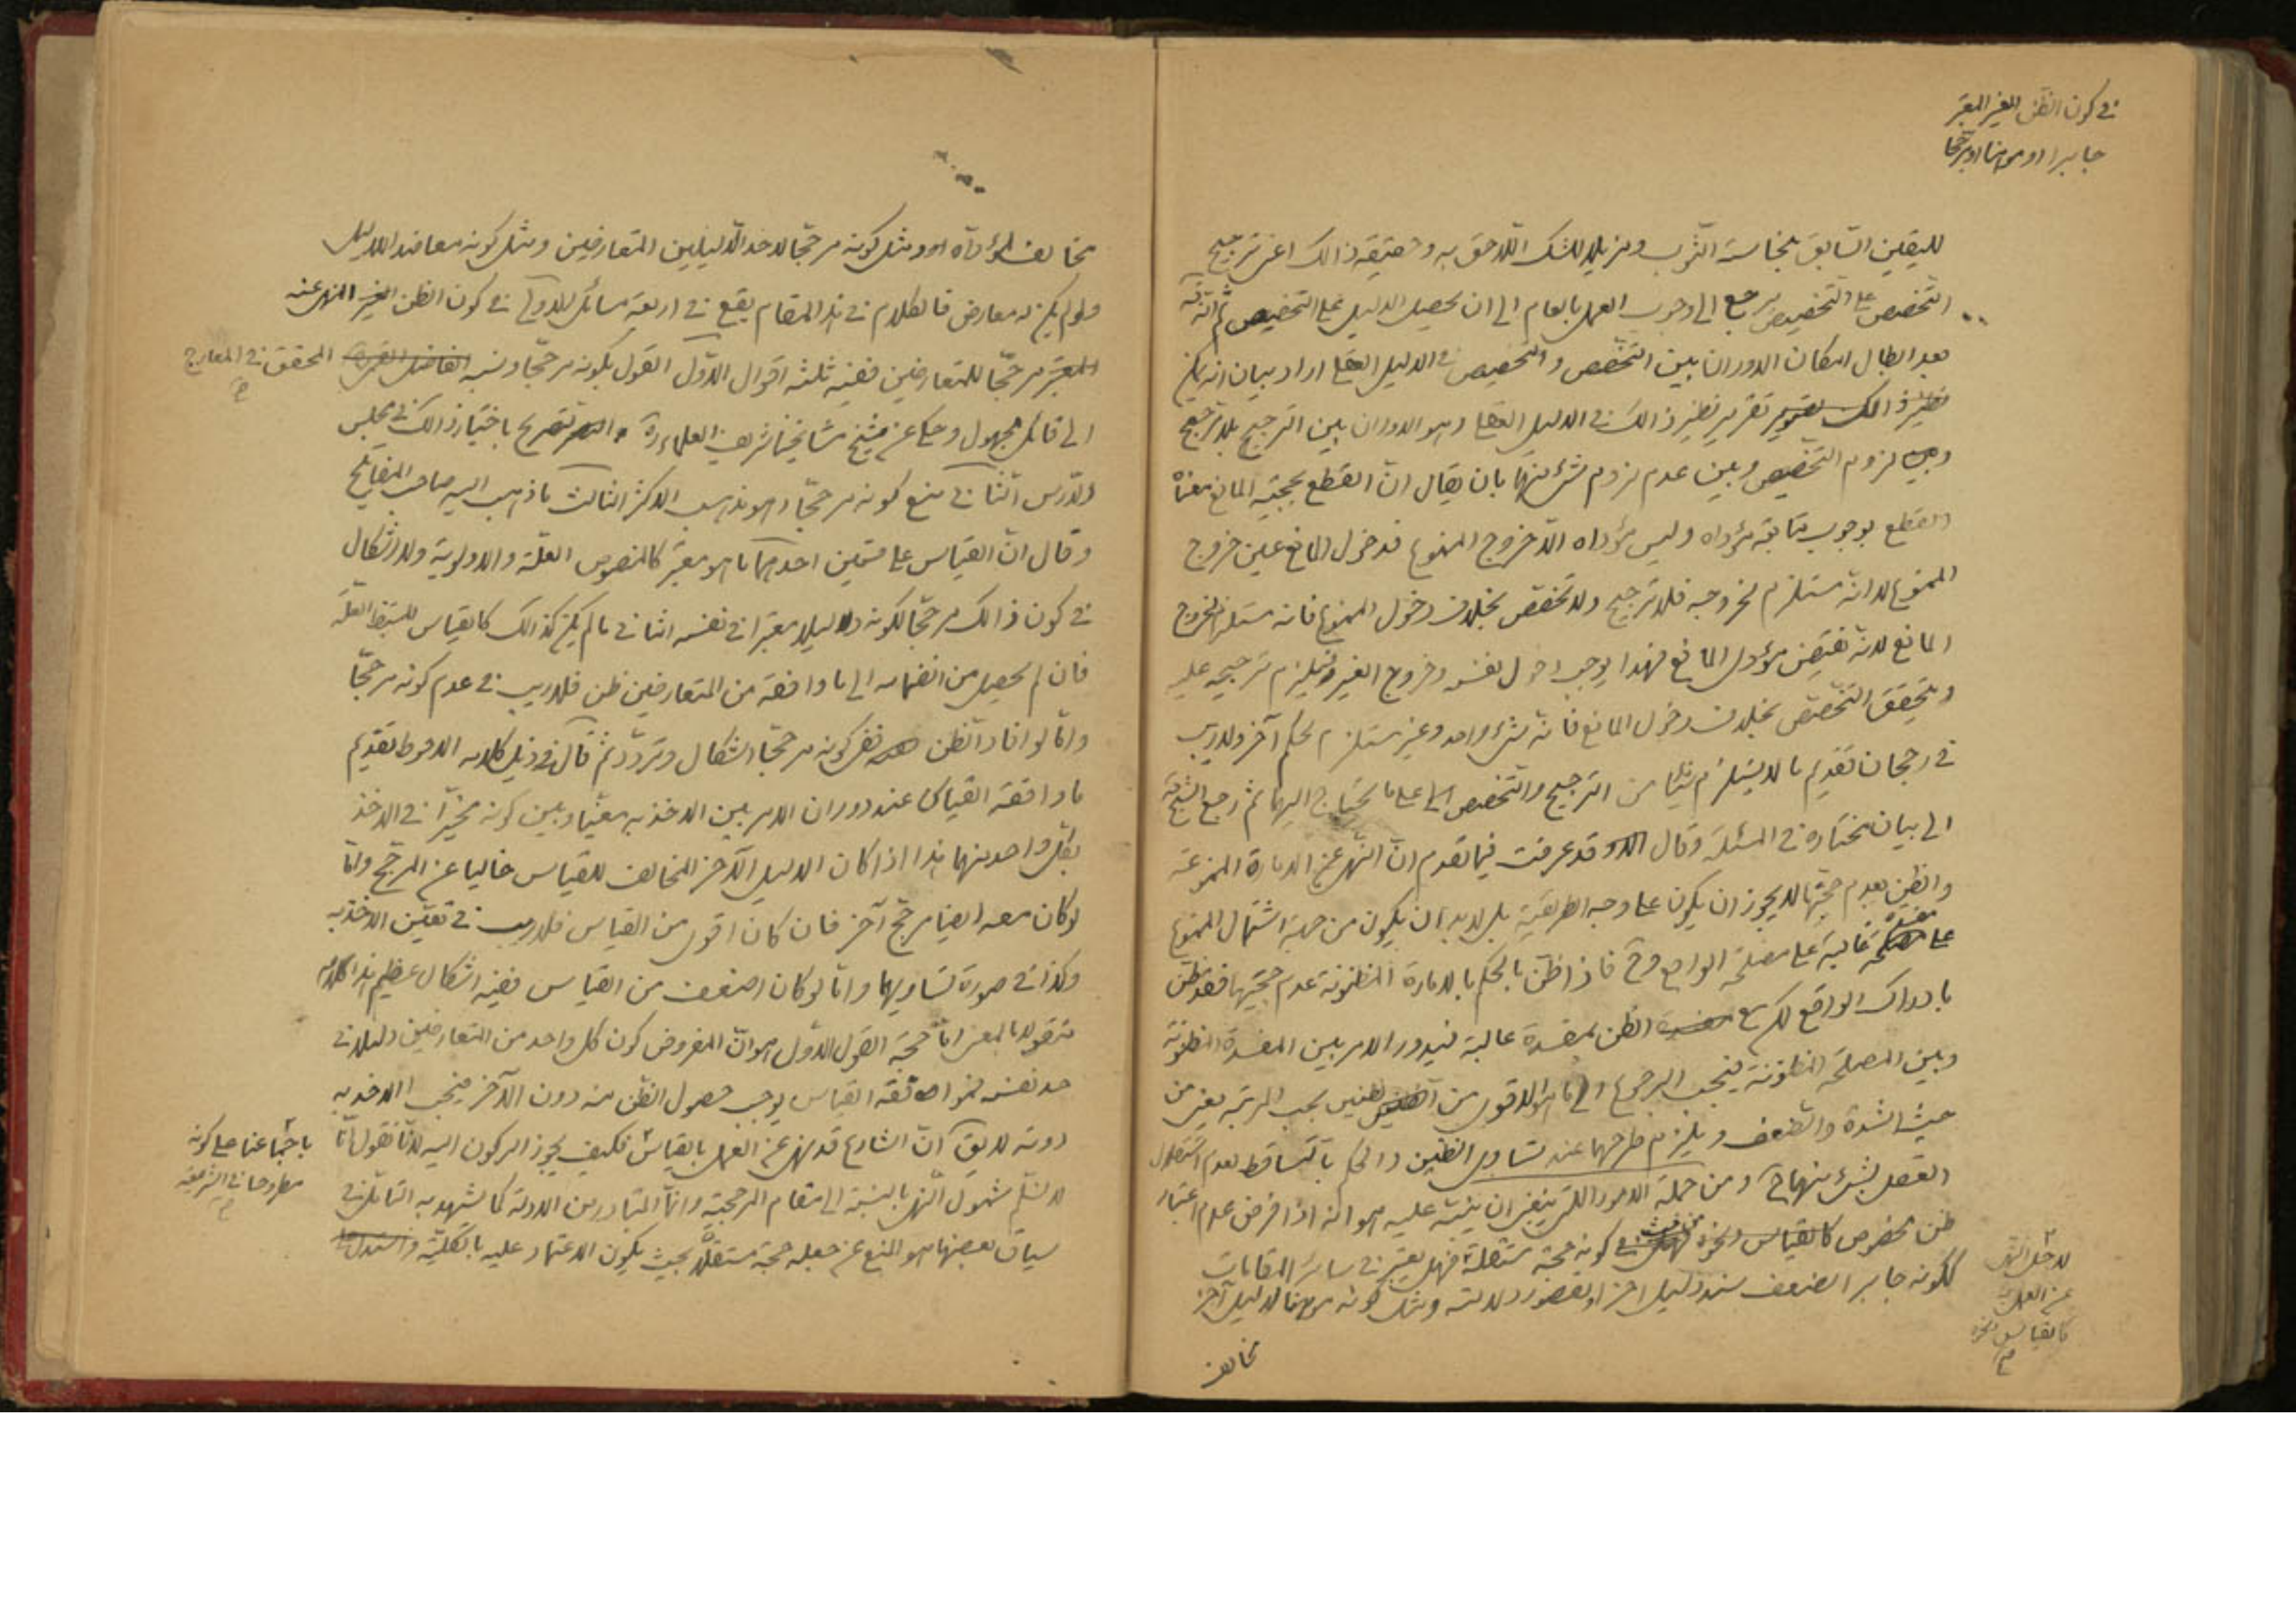 في كون الظن الغير المعتبر
جابرا او موهنا او مرجحا
لليقين السابق بنجاسة الثوب ومزيلا للشك اللاحق به وحقيقة ذالك اعنى ترجيح
التخصص على التخصيص يرجع الى وجوب العمل بالعام الى ان يحصل الدليل على التخصيص ثم انه
بعد ابطال امكان الدوران بين التخصص والتخصيص في الدليل العقلى اراد بيان انه يمكن
تقرير نظير ذالك في الدليل العقلى وهو الدوران بين الترجيح بلا مرجح
وبين لزوم التخصيص وبين عدم لزوم شئ منهما بان يقال ان القطع بحجية المانع معناه
القطع بوجوب متابعة مؤداه وليس مؤداه الا خروج الممنوع فدخول المانع عين خروج
الممنوع لا انه مستلزم لخروجه فلا ترجيح ولا تخصص بخلاف دخول الممنوع فانه مستلزم لخروج
المانع لانه نقيض مؤدى المانع فهذا يوجب دخول نفسه وخروج الغير ويستلزم ترجيحه عليه
ويتحقق التخصيص بخلاف دخول المانع فانه شئ واحد وغير مستلزم لحكم آخر ولا ريب
في رجحان تقديم ما لا يستلزم شيئا من الترجيح والتخصيص على ما يحتاج اليهما ثم رجع الشيخ
الى بيان مختاره في المسئلة وقال قد عرفت فيما تقدم ان النهى عن الامارة الممنوعة
والظن بعدم حجيتها لا يجوز ان يكون على وجه الطريقية بل لا بد ان يكون من جهة اشتمال الممنوع
على مفسدة غالبة على مصلحة الواقع وح فاذا ظن بالحكم بالامارة المظنونة عدم حجيتها فقد ظن
بادراك الواقع لكن مع الظن بمفسدة غالبة فيدور الامر بين المفسدة المظنونة
وبين المصلحة المظنونة فيجب الرجوع الى ما هو الاقوى من الظنين بحسب المرتبة يعنى من
حيث الشدة والضعف ويلزم طرحهما عند تساوى الظنين والحكم بالتساقط لعدم استقلال
العقل بشئ منهما ح ومن جملة الامور اللتى ينبغى ان ينبه عليه هو انه اذا فرض عدم اعتبار
ظن مخصوص كالقياس ونحوه من حيث كونه حجة مستقلة فهل يعتبر في سائر المقامات
لاجل النهى
عن العمل به
كالقياس ونحوه
م
ككونه جابرا لضعف سند دليل اخر او لقصور دلالته ومثل كونه موهنا لدليل آخر
مخالف
مخالف لمؤداه ومثل كونه مرجحا لاحد الدليلين المتعارضين ومثل كونه معاضدا لدليل
ولو لم يكن له معارض فالكلام في هذا المقام يقع في اربعة مسائل الاولى في كون الظن الغير المنهى عنه
المعتبر مرجحا للمتعارضين ففيه ثلثة اقوال الاول القول بكونه مرجحا ونسبه الفاضل القمى المحقق في المعارج
الى قائل مجهول وحكى عن شيخ مشايخنا شريف العلماء ره التصريح باختيار ذالك في مجلس
الدرس الثانى منع كونه مرجحا وهو مذهب الاكثر الثالث ما ذهب اليه صاحب المفاتيح
وقال ان القياس على قسمين احدهما ما هو معتبر كالمنصوص العلة والاولوية ولا اشكال
في كون ذالك مرجحا لكونه دليلا معتبرا في نفسه الثانى ما لم يكن كذالك كالقياس المستنبط العلة
فان لم يحصل من انضمامه الى ما وافقه من المتعارضين ظن فلا ريب في عدم كونه مرجحا
واما لو افاد الظن ففى كونه مرجحا اشكال وتردد ثم قال في ذيل كلامه الاحوط تقديم
ما وافقه القياس عند دوران الامر بين الاخذ به معينا وبين كونه مخيرا في الاخذ
بكل واحد منهما هذا اذا كان الدليل الآخر المخالف للقياس خاليا عن المرجح واما
لو كان معه ايضا مرجح آخر فان كان اقوى من القياس فلا ريب في تعين الاخذ به
وكذا في صورة تساويهما واما لو كان اضعف من القياس ففيه اشكال عظيم هذا كلامه
منقولا بالمعنى اما حجة القول الاول هو ان المفروض كون كل واحد من المتعارضين دليلا في
حد نفسه فموافقة القياس يوجب حصول الظن منه دون الآخر فيجب الاخذ به
دونه لا يق ان الشارع قد نهى عن العمل بالقياس فكيف يجوز الركون اليه لانا نقول انا
باجماعنا على كونه
مطروحا في الشريعة
م
لا نسلم شمول النهى بالنسبة الى مقام المرجحية وانما المتبادر من الادلة كما يشهد به التامل في
سياق بعضها هو المنع عن جعله حجة مستقلة بحيث يكون الاعتماد عليه بالكلية